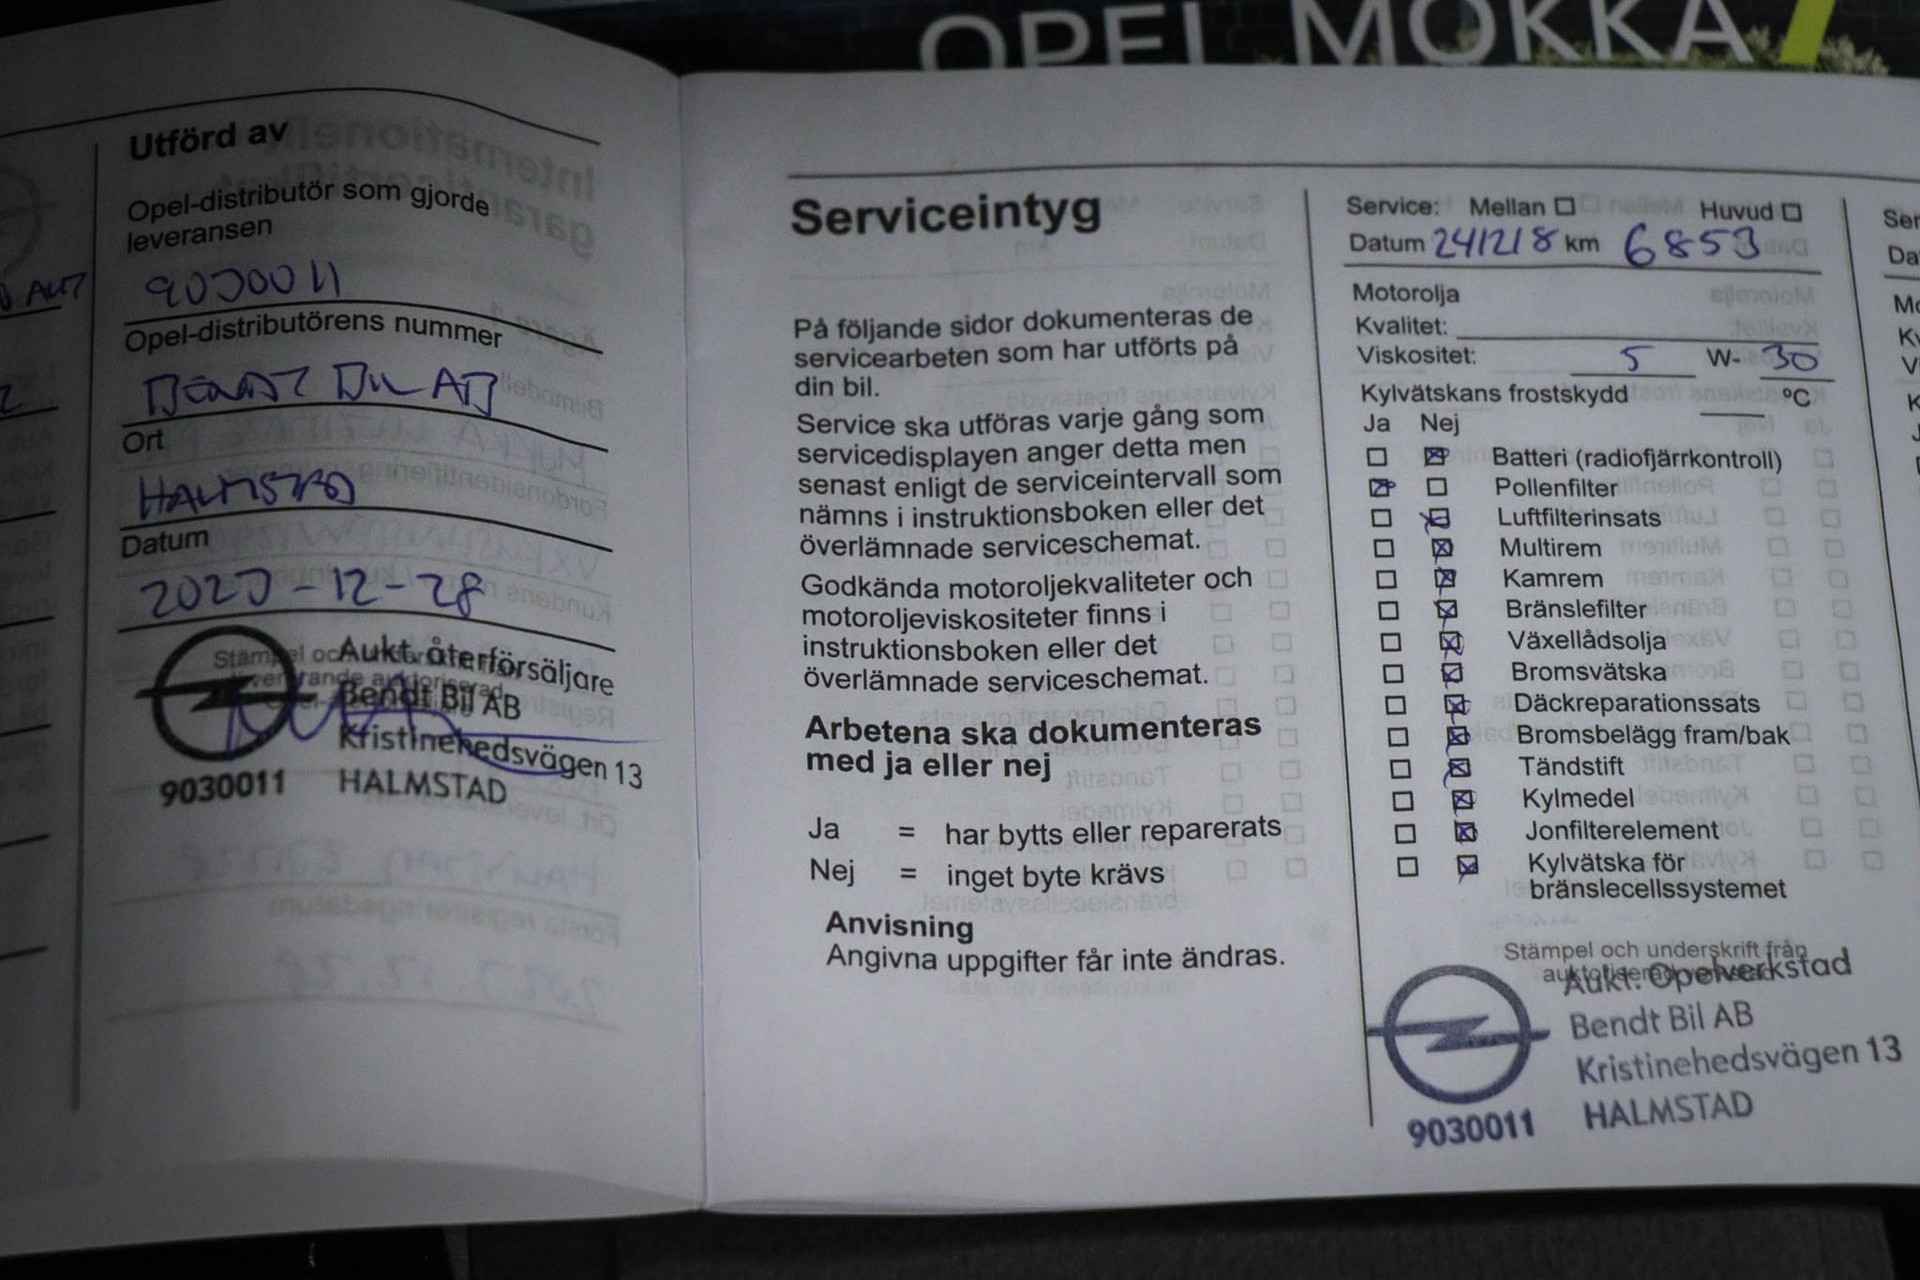 OPEL MOKKA
Utförd av
Opel-distributör som gjorde
leveransen
9030011
Opel-distributörens nummer
BENDT BIL AB
Ort
HALMSTAD
Datum
2023-12-28
Aukt. återförsäljare
Bendt Bil AB
Kristinehedsvägen 13
9030011 HALMSTAD
Serviceintyg
På följande sidor dokumenteras de
servicearbeten som har utförts på
din bil.
Service ska utföras varje gång som
servicedisplayen anger detta men
senast enligt de serviceintervall som
nämns i instruktionsboken eller det
överlämnade serviceschemat.
Godkända motoroljekvaliteter och
motoroljeviskositeter finns i
instruktionsboken eller det
överlämnade serviceschemat.
Arbetena ska dokumenteras
med ja eller nej
Ja = har bytts eller reparerats
Nej = inget byte krävs
Anvisning
Angivna uppgifter får inte ändras.
Service: Mellan Huvud
Datum 241218 km 6853
Motorolja
Kvalitet:
Viskositet: 5 W- 30
Kylvätskans frostskydd °C
Ja Nej
Batteri (radiofjärrkontroll)
Pollenfilter
Luftfilterinsats
Multirem
Kamrem
Bränslefilter
Växellådsolja
Bromsvätska
Däckreparationssats
Bromsbelägg fram/bak
Tändstift
Kylmedel
Jonfilterelement
Kylvätska för
bränslecellssystemet
Stämpel och underskrift från
Aukt. Opelverkstad
Bendt Bil AB
Kristinehedsvägen 13
9030011 HALMSTAD